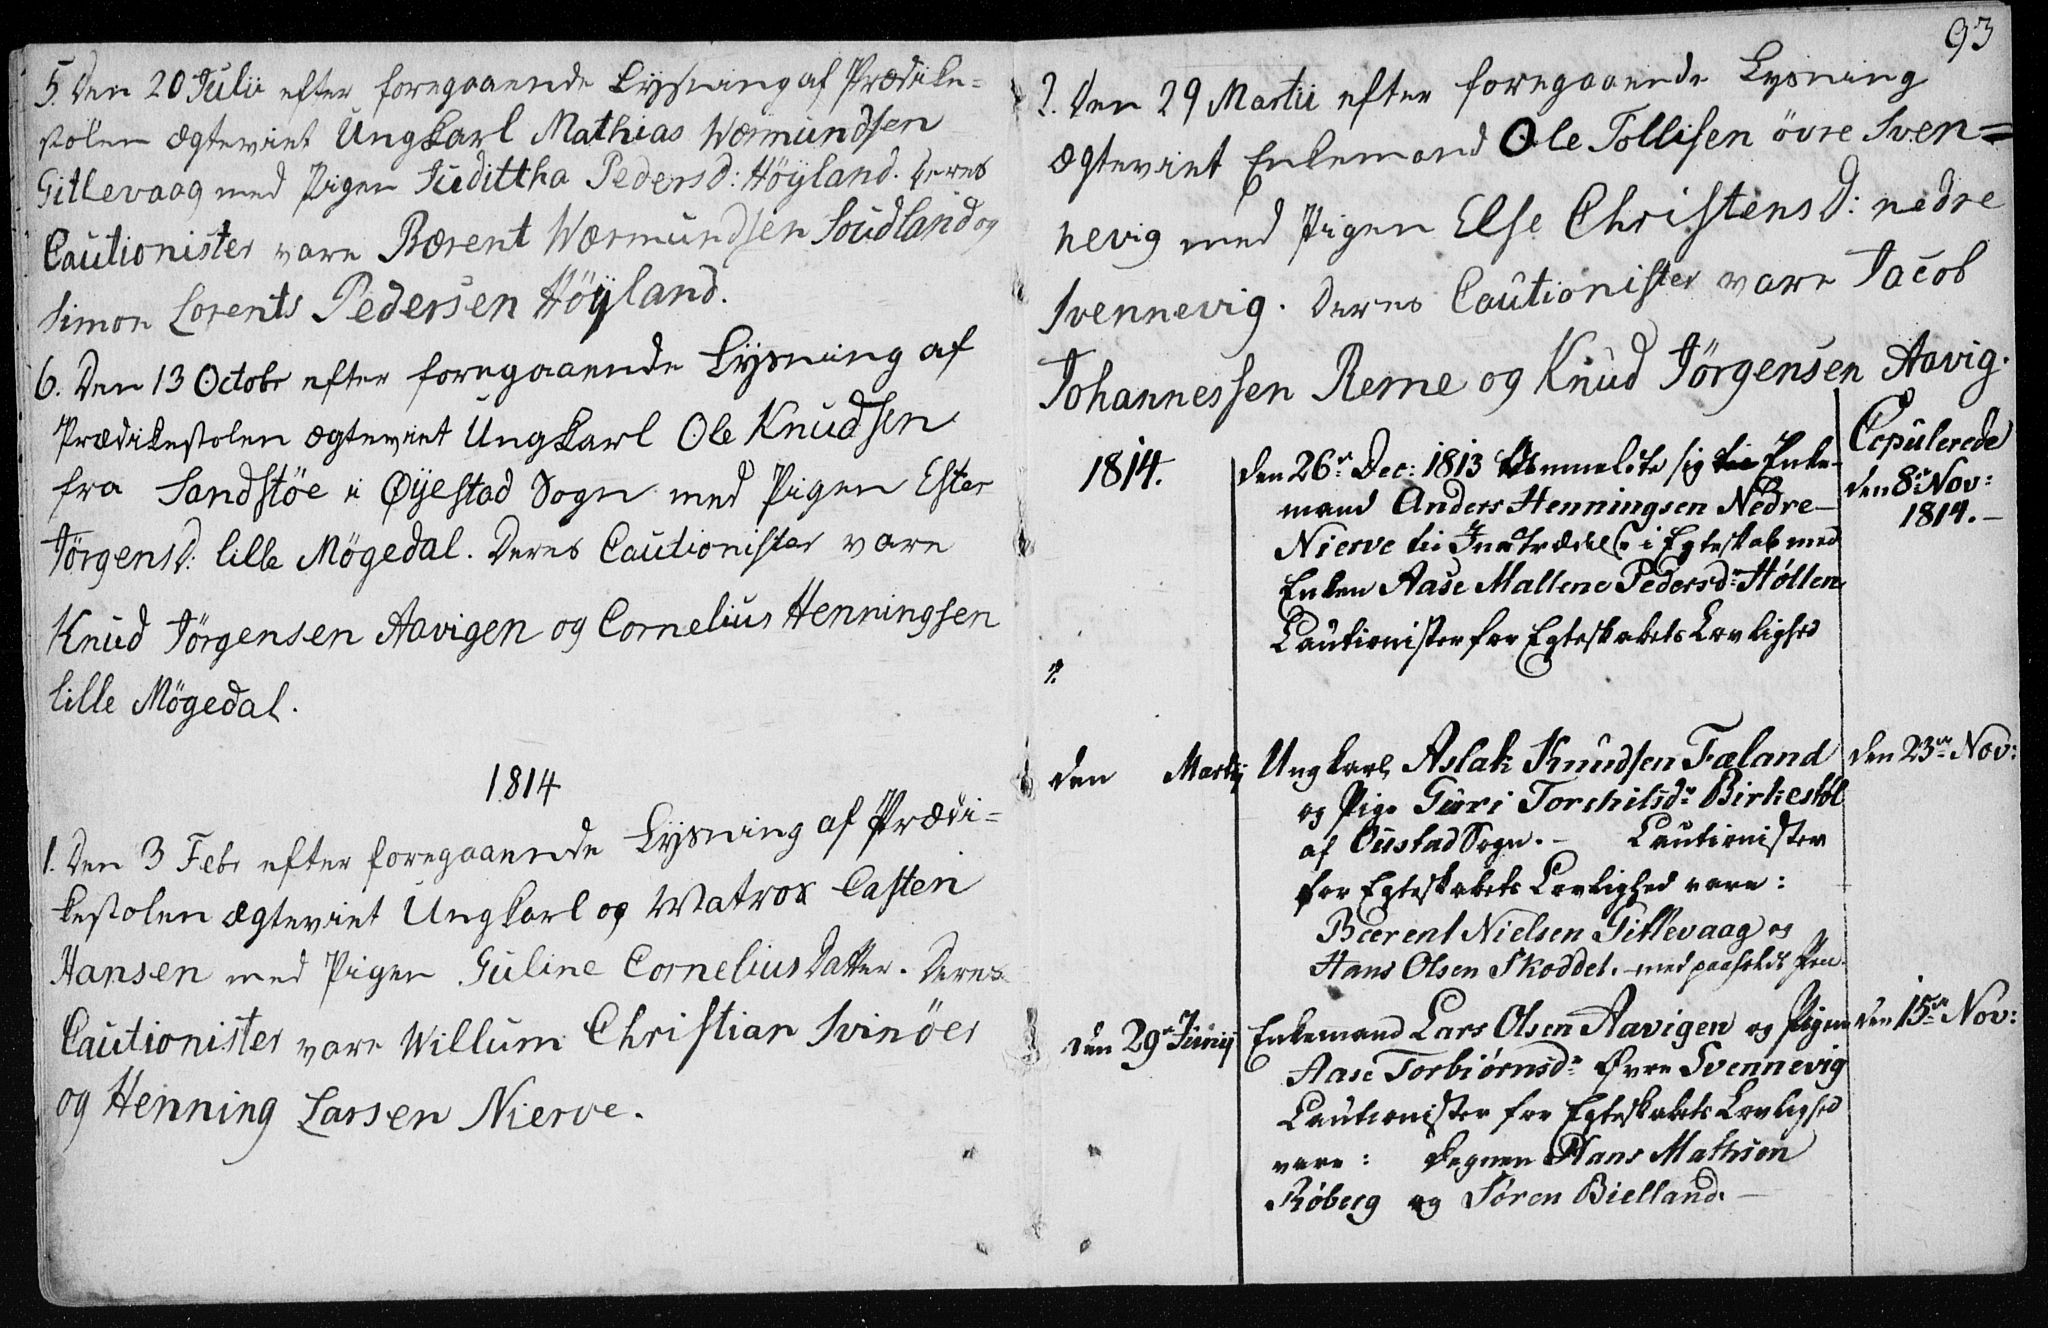 5. Den 20 Julii efter foregaaende Lysning af Prædike=
stolen ægteviet Ungkarl Mathias Wærmundsen
Gitlevaag med Pigen Judittha Pedersd: Höyland. Deres
Cautionister vare Bærent Wærmundsen Soudland og
Simon Lorents Pedersen Höyland.
6. Den 13 Octobr efter foregaaende Lysning af
Prædikestolen ægteviet Ungkarl Ole Knudsen
fra Sandstöe i Øyestad Sogn med Pigen Ester
Jörgensd: lille Mögedal. Deres Cautionister vare
Knud Jörgensen Aavigen og Cornelius Henningsen
lille Mögedal.
1814
1. Den 3 Febr efter foregaaende Lysning af Prædi=
kestolen ægteviet Ungkarl og Matros Casten
Hansen med Pigen Guline Cornelius Datter. Deres
Cautionister vare Willum Christian Svinöer
og Henning Larsen Nierve.
93
2. Den 29 Martii efter foregaaende Lysning
ægteviet Enkemand Ole Tollisen övre Sven=
nevig med Pigen Else Christensd: nedre
Svennevig. Deres Cautionister vare Jacob
Johannessen Rerne og Knud Jörgensen Aavig.
Copulerede
1814. Den 26de Dec: 1813 Anmeldte sig Enke-
mand Anders Henningsen Nedre- den 8de Nov:
1814.-
Nierve til Indtrædelse i Egteskab med
Enken Aase Mallene Pedersdr Høllen
Cautionister for Egteskabets Lovlighed
den Martij Ungkarl Aslak Knudsen Fæland den 23de Nov:
og Pige Guri Torskilsdr Birkestøl
af Oustad Sogn.- Cautionister
for Egteskabets Lovlighed vare:
Beerent Nielsen Gitlevaag og
Hans Olsen Skoddel. - med paaholdt Pen.
den 29de Junij Enkemand Lars Olsen Aavigen og Pigen den 15de Nov:
Aase Torbiørnsdr Øvre Svennevig
Cautionister for Egteskabets Lovlighed
vare: Degnen Hans Mathisen
Røberg og Søren Bielland.-